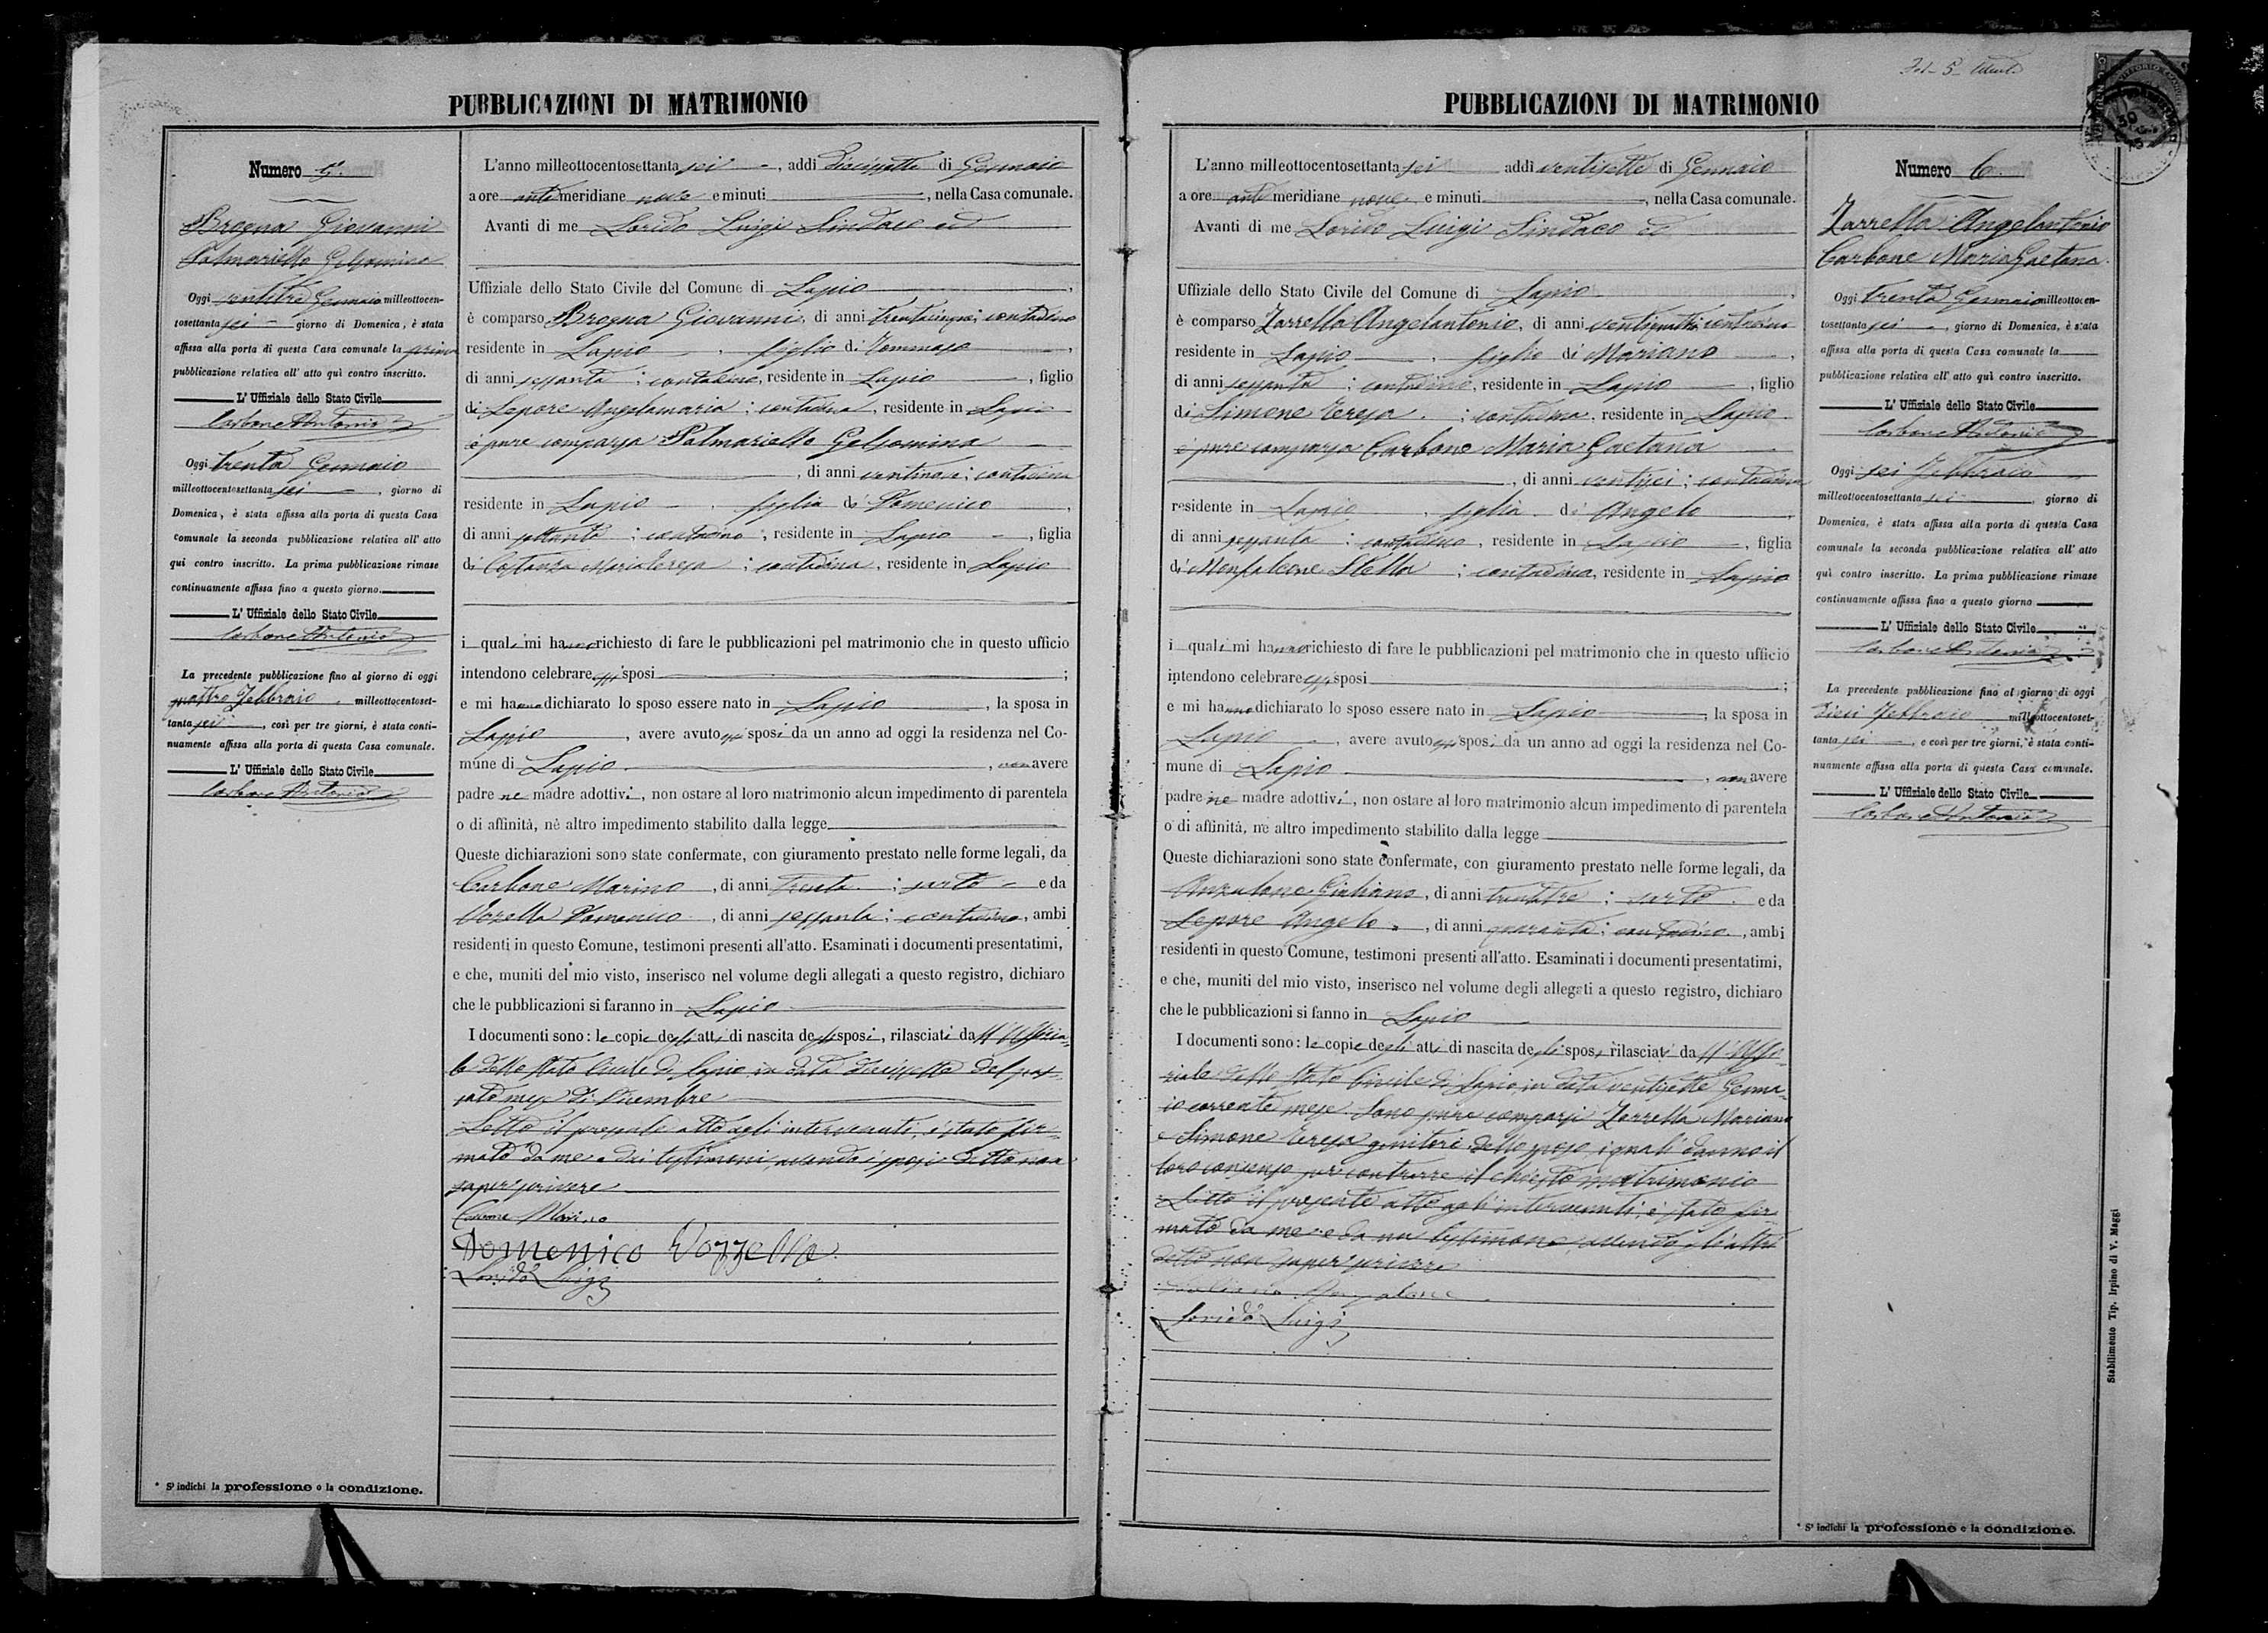 PUBBLICAZIONI DI MATRIMONIO
Numero 5.
Brogna Giovanni
Palmariello Gelsomina
Oggi ventitre Gennaio milleottocen-
tosettanta sei giorno di Domenica, è stata
affissa alla porta di questa Casa comunale la prima
pubblicazione relativa all' atto quì contro inscritto.
L' Uffiziale dello Stato Civile
Carbone Antonio
Oggi trenta Gennaio
milleottocentosettanta sei, giorno di
Domenica, è stata affissa alla porta di questa Casa
comunale la seconda pubblicazione relativa all' atto
qui contro inscritto. La prima pubblicazione rimase
continuamente affissa fino a questo giorno.
L' Uffiziale dello Stato Civile
Carbone Antonio
La precedente pubblicazione fino al giorno di oggi
quattro Febbraio milleottocentoset-
tanta sei, così per tre giorni, è stata conti-
nuamente affissa alla porta di questa Casa comunale.
L' Uffiziale dello Stato Civile
Carbone Antonio
* S' indichi la professione o la condizione.
L'anno milleottocentosettanta sei, addì diecissette di Gennaio
a ore anti meridiane nove e minuti, nella Casa comunale.
Avanti di me Lorido Luigi Sindaco ed
Uffiziale dello Stato Civile del Comune di Lapio,
è comparso Brogna Giovanni, di anni trentacinque; contadino
residente in Lapio, figlio di Tommaso,
di anni sessanta; contadino, residente in Lapio, figlio
di Lepore Angelamaria; contadina, residente in Lapio
è pure comparsa Palmariello Gelsomina
, di anni ventinove; contadina
residente in Lapio, figlia di Domenico,
di anni settanta; contadino, residente in Lapio, figlia
di Costanza Maria Teresa; contadina, residente in Lapio
i quali mi hanno richiesto di fare le pubblicazioni pel matrimonio che in questo ufficio
intendono celebrare essi sposi;
e mi hanno dichiarato lo sposo essere nato in Lapio, la sposa in
Lapio, avere avuto essi sposi da un anno ad oggi la residenza nel Co-
mune di Lapio, non avere
padre ne madre adottivi, non ostare al loro matrimonio alcun impedimento di parentela
o di affinità, nè altro impedimento stabilito dalla legge
Queste dichiarazioni sono state confermate, con giuramento prestato nelle forme legali, da
Carbone Marino, di anni trenta; sarto e da
Vozzella Domenico, di anni sessanta; contadino, ambi
residenti in questo Comune, testimoni presenti all'atto. Esaminati i documenti presentatimi,
e che, muniti del mio visto, inserisco nel volume degli allegati a questo registro, dichiaro
che le pubblicazioni si faranno in Lapio
I documenti sono: le copie degli atti di nascita degli sposi, rilasciati dall'Uffizia-
le dello Stato Civile di Lapio in data diecissette del pas-
sato mese di Dicembre
Letto il presente atto agli intervenuti, è stato fir-
mato da me e dai testimoni, avendo i sposi detto non
saper scrivere
Carbone Marino
Domenico Vozzella
Lorido Luigi
PUBBLICAZIONI DI MATRIMONIO
L'anno milleottocentosettanta sei addì ventisette di Gennaio
a ore anti meridiane nove e minuti, nella Casa comunale.
Avanti di me Lorido Luigi Sindaco ed
Uffiziale dello Stato Civile del Comune di Lapio,
è comparso Zarrella Angelantonio, di anni ventiquattro; contadino
residente in Lapio, figlio di Mariano,
di anni sessanta; contadino, residente in Lapio, figlio
di Simone Teresa; contadina, residente in Lapio.
è pure comparsa Carbone Maria Gaetana
, di anni ventisei; contadina
residente in Lapio, figlia di Angelo
di anni sessanta; contadino, residente in Lapio, figlia
di Monfalcone Stella; contadina, residente in Lapio
i quali mi hanno richiesto di fare le pubblicazioni pel matrimonio che in questo ufficio
intendono celebrare essi sposi;
e mi hanno dichiarato lo sposo essere nato in Lapio, la sposa in
Lapio, avere avuto essi sposi da un anno ad oggi la residenza nel Co-
mune di Lapio, non avere
padre ne madre adottivi, non ostare al loro matrimonio alcun impedimento di parentela
o di affinità, nè altro impedimento stabilito dalla legge
Queste dichiarazioni sono state confermate, con giuramento prestato nelle forme legali, da
Anzalone Giuliano, di anni trentatre; sarto e da
Lepore Angelo, di anni quaranta; contadino, ambi
residenti in questo Comune, testimoni presenti all'atto. Esaminati i documenti presentatimi,
e che, muniti del mio visto, inserisco nel volume degli allegati a questo registro, dichiaro
che le pubblicazioni si fanno in Lapio
I documenti sono: le copie degli atti di nascita degli sposi rilasciati dall'Uffi-
ziale dello Stato Civile di Lapio in data ventisette Genna-
io corrente mese. Sono pure comparsi Zarrella Mariano
e Simone Teresa genitori dello sposo, i quali danno il
loro consenso per contrarre il chiesto matrimonio
Letto il presente atto agli intervenuti, è stato fir-
mato da me e da un testimone, avendo gli altri
detto non saper scrivere
Giuliano Anzalone
Lorido Luigi
Numero 6.
Zarrella Angelantonio
Carbone Maria Gaetana.
Oggi trenta Gennaio milleottocen-
tosettanta sei, giorno di Domenica, è stata
affissa alla porta di questa Casa comunale la
pubblicazione relativa all' atto quì contro inscritto.
L' Uffiziale dello Stato Civile
Carbone Antonio
Oggi sei Febbraio
milleottocentosettanta sei, giorno di
Domenica, è stata affissa alla porta di questa Casa
comunale la seconda pubblicazione relativa all' atto
quì contro inscritto. La prima pubblicazione rimase
continuamente affissa fino a questo giorno
L' Uffiziale dello Stato Civile
Carbone Antonio
La precedente pubblicazione fino al giorno di oggi
dieci Febbraio milleottocentoset-
tanta sei, e così per tre giorni, è stata conti-
nuamente affissa alla porta di questa Casa comunale.
L' Uffiziale dello Stato Civile
Carbone Antonio
* S' indichi la professione o la condizione.
Stabilimento Tip. Irpino di V. Maggi